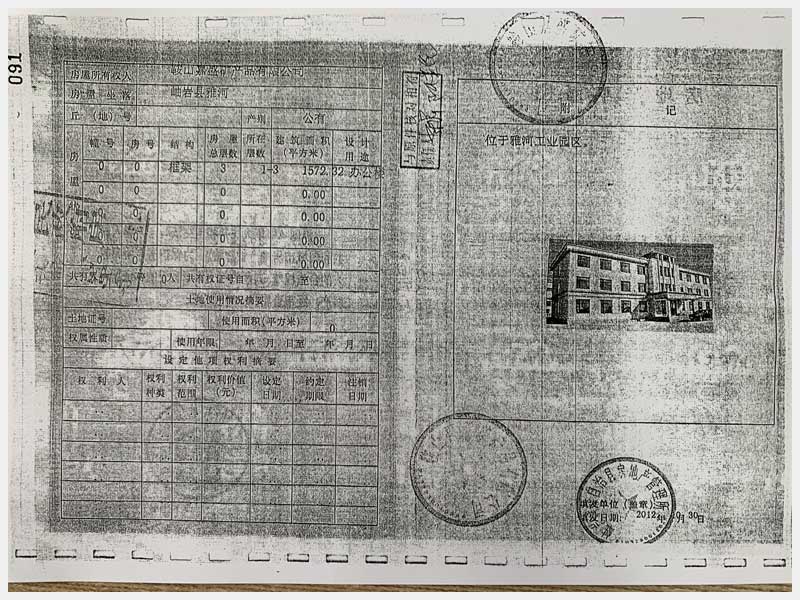 091
房屋所有权人 鞍山 矿产品有限公司
房屋坐落 岫岩县雅河
丘(地)号 产别 公有
房屋 幢号 房号 结构 房屋总层数 所在层数 建筑面积(平方米) 设计用途
0 0 框架 3 1-3 1572.32 办公楼
0 0 0 0.00
0 0 0 0.00
0 0 0 0.00
0 0 0 0.00
共有人 0人 共有权证号自 至
土地使用情况摘要
土地证号 使用面积(平方米) 0
权属性质 使用年限 年 月 日至 年 月 日
设定他项权利摘要
权利人 权利种类 权利范围 权利价值(元) 设定日期 约定期限 注销日期
与原件核对相符
附 记
位于雅河工业园区。
自治县房地产管理所
填发单位(盖章)
填发日期: 2012年10月30日